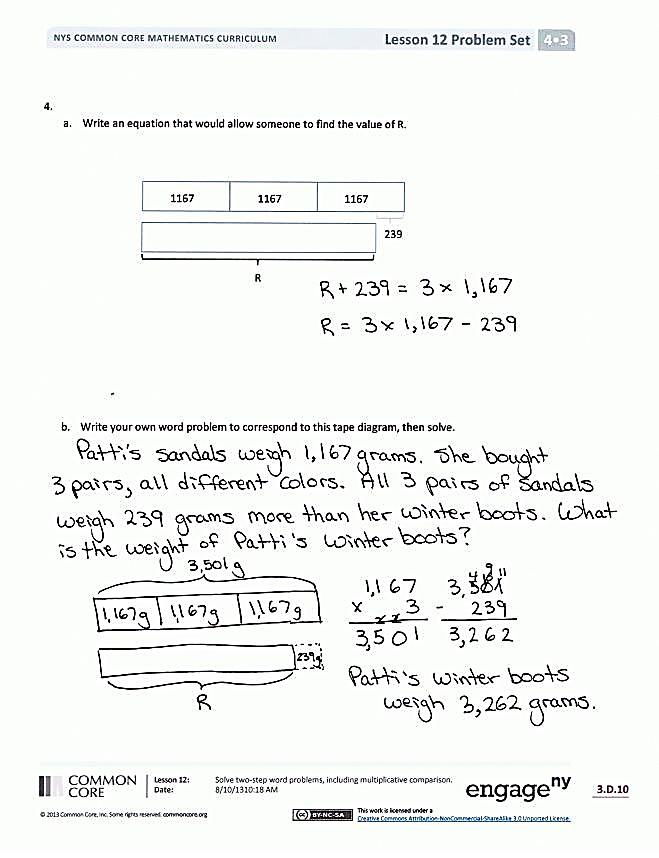 NYS COMMON CORE MATHEMATICS CURRICULUM Lesson 12 Problem Set 4•3
4.
a. Write an equation that would allow someone to find the value of R.
1167 1167 1167
239
R
R + 239 = 3 × 1,167
R = 3 × 1,167 - 239
b. Write your own word problem to correspond to this tape diagram, then solve.
Patti's sandals weigh 1,167 grams. She bought
3 pairs, all different colors. All 3 pairs of sandals
weigh 239 grams more than her winter boots. What
is the weight of Patti's winter boots?
3,501g
1,167g 1,167g 1,167g
239g
R
1,167
× 3
3,501
4 9 11
3,501
- 239
3,262
Patti's winter boots
weigh 3,262 grams.
COMMON CORE
Lesson 12: Solve two-step word problems, including multiplicative comparison.
Date: 8/10/1310:18 AM
engage ny
3.D.10
© 2013 Common Core, Inc. Some rights reserved. commoncore.org
(cc) BY-NC-SA
This work is licensed under a
Creative Commons Attribution-NonCommercial-ShareAlike 3.0 Unported License.